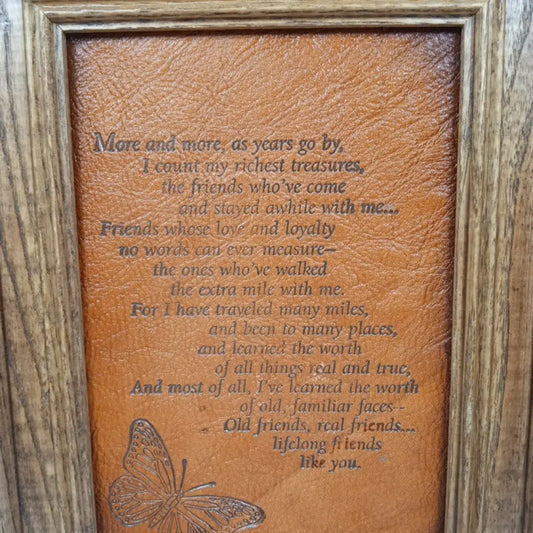 More and more, as years go by,
I count my richest treasures,
the friends who've come
and stayed awhile with me...
Friends whose love and loyalty
no words can ever measure—
the ones who've walked
the extra mile with me.
For I have traveled many miles,
and been to many places,
and learned the worth
of all things real and true,
And most of all, I've learned the worth
of old, familiar faces--
Old friends, real friends...
lifelong friends
like you.